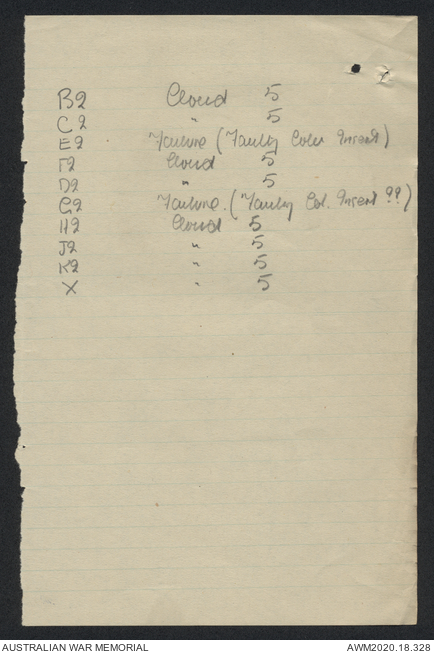 B2 Cloud 5
C2 " 5
E2 Failure (Faulty Colour Insert)
F2 Cloud 5
D2 " 5
G2 Failure. (Faulty Col. Insert ??)
H2 Cloud 5
J2 " 5
K2 " 5
X " 5
AUSTRALIAN WAR MEMORIAL AWM2020.18.328